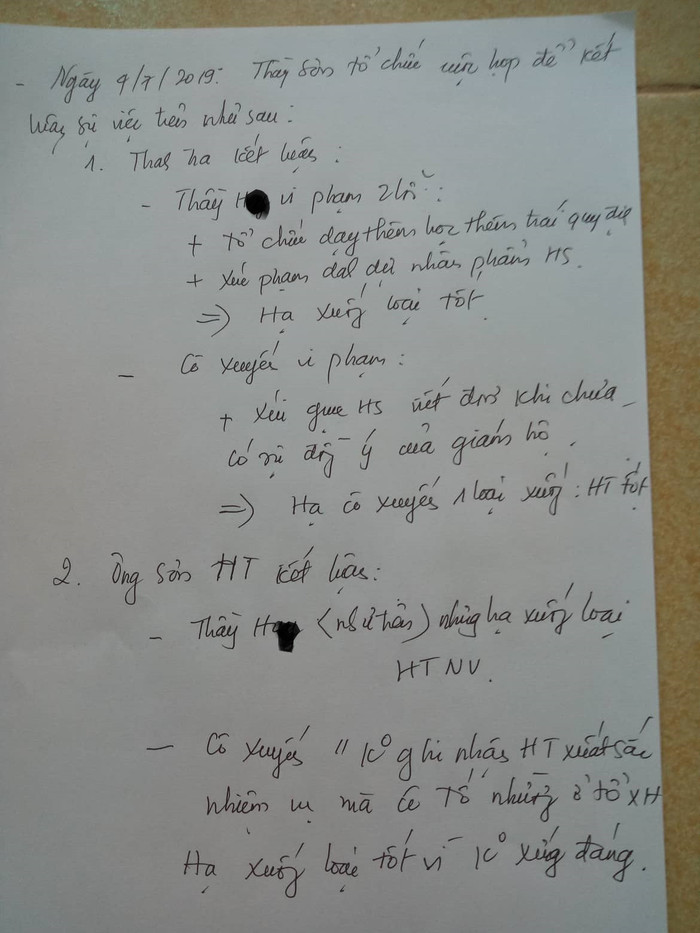 - Ngày 4/7/2019: Thầy Sơn tổ chức cuộc họp để kết
luận sự việc trên như sau:
1. Thanh tra kết luận:
- Thầy H vi phạm 2 lỗi:
+ tổ chức dạy thêm học thêm trái quy định
+ xúc phạm danh dự nhân phẩm HS.
=> Hạ xuống loại tốt.
- Cô xuyến vi phạm:
+ xúi giục HS viết đơn khi chưa
có sự đồng ý của giám hộ.
=> Hạ cô xuyến 1 loại xuống: HT tốt
2. Ông Sơn HT kết luận:
- Thầy H (như trên) nhưng hạ xuống loại
HTNV.
- Cô xuyến " K⁰ ghi nhận HT xuất sắc
nhiệm vụ mà có tố những ở tổ XH
Hạ xuống loại tốt vì K⁰ xứng đáng.